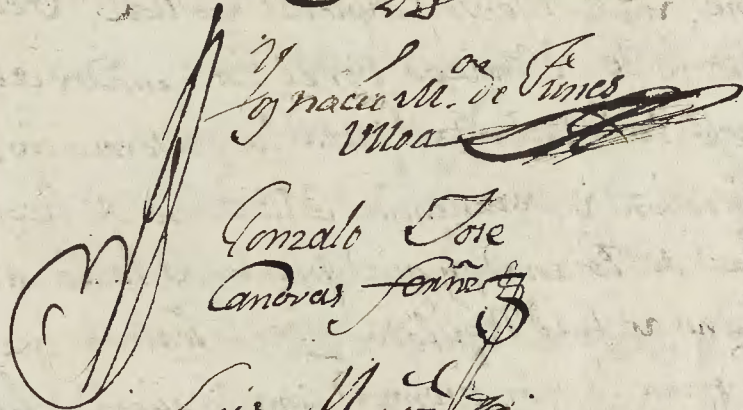 Ygnacio M.ª de Funes
Ulloa
Gonzalo Jose
Canovas Ferñez
Luis